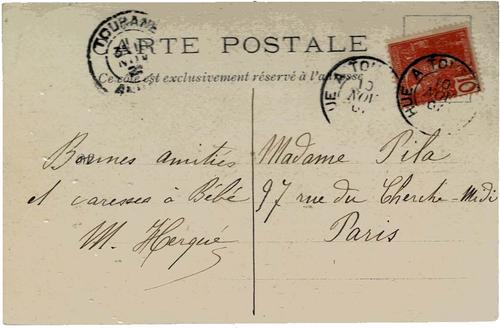 TOURANE
CARTE POSTALE
Ce côté est exclusivement réservé à l'adresse
HUE A TOU
10
NOV
HUE A TOU
10
NOV
10
Bonnes amitiés
et caresses à Bébé
M. Hergué
Madame Pila
97 rue du Cherche-Midi
Paris